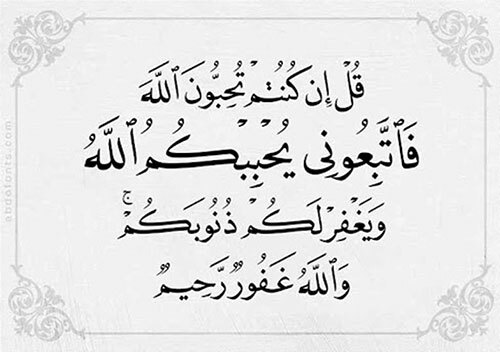 قُلْ إِن كُنتُمْ تُحِبُّونَ ٱللَّهَ
فَٱتَّبِعُونِى يُحْبِبْكُمُ ٱللَّهُ
وَيَغْفِرْ لَكُمْ ذُنُوبَكُمْ ۗ
وَٱللَّهُ غَفُورٌ رَّحِيمٌ
abdofonts.com